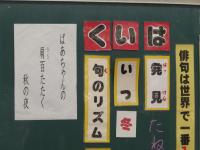 俳句は世界で一番
はいく
発見
はっけん
いつ
冬
句のリズム
く
たね
ばあちゃんの
肩百たたく
秋の夜